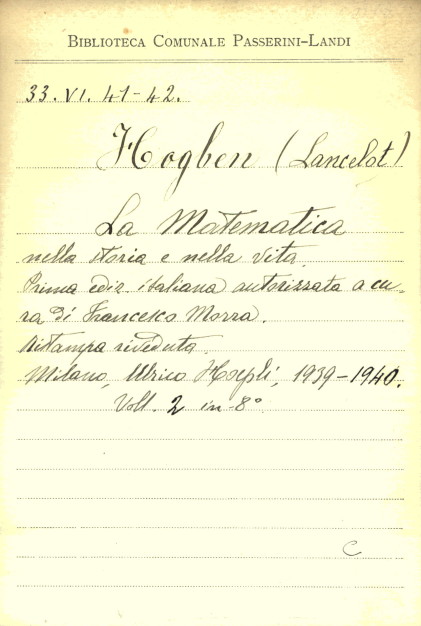 BIBLIOTECA COMUNALE PASSERINI-LANDI
33. VI. 41-42.
Hogben (Lancelot)
La Matematica
nella storia e nella vita.
Prima ediz. italiana autorizzata a cu-
ra di Francesco Morra.
Ristampa riveduta.
Milano, Ulrico Hoepli, 1939-1940.
Voll. 2 in-8°
C